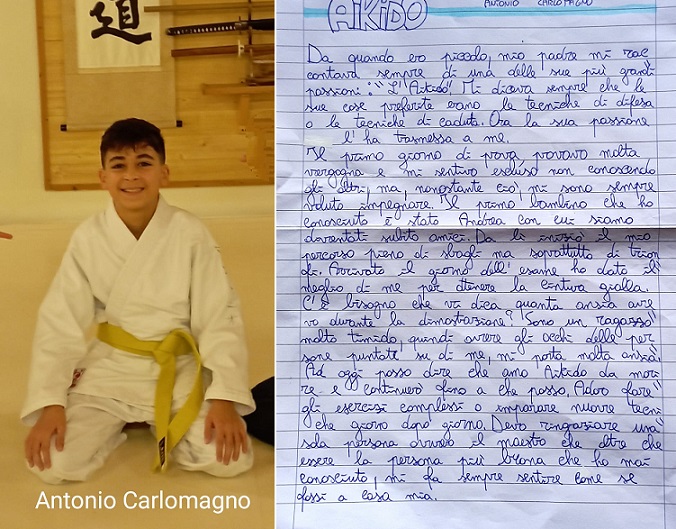 道
Antonio Carlomagno
AIKIDO
ANTONIO CARLOMAGNO
Da quando ero piccolo, mio padre mi rac"
contava sempre di una delle sue più grandi
passioni: "L'Aikido". Mi diceva sempre che le
sue cose preferite erano le tecniche di difesa
o le tecniche di caduta. Ora la sua passione
l'ha trasmessa a me.
Il primo giorno di prova, provavo molta
vergogna e mi sentivo escluso non conoscendo
gli altri, ma, nonostante ciò mi sono sempre
voluto impegnare. Il primo bambino che ho
conosciuto è stato Andrea con cui siamo
diventati subito amici. Da lì iniziò il mio
percorso pieno di sbagli ma soprattutto di trion
fi. Arrivato il giorno dell'esame ho dato il
meglio di me per ottenere la cintura gialla.
C'è bisogno che vi dica quanta ansia ave
vo durante la dimostrazione? Sono un ragazzo
molto timido, quindi avere gli occhi delle per
sone puntate su di me, mi porta molta ansia.
Ad oggi posso dire che amo Aikido da mori
re e continuerò fino a che posso. Adoro fare
gli esercizi complessi o imparare nuove tecni
che giorno dopo giorno. Devo ringraziare una
sola persona ovvero il maestro che oltre che
essere la persona più buona che ho mai
conosciuto, mi fa sempre sentire come se
fossi a casa mia.